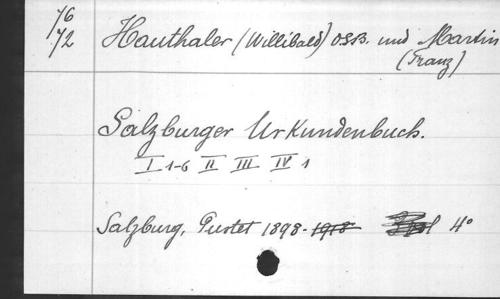 76
72
Hauthaler (Willibald) O.S.B. und Martin
(Franz)
Salzburger Urkundenbuch.
I 1-6 II III IV 1
Salzburg, Pustet 1898-1918 4°